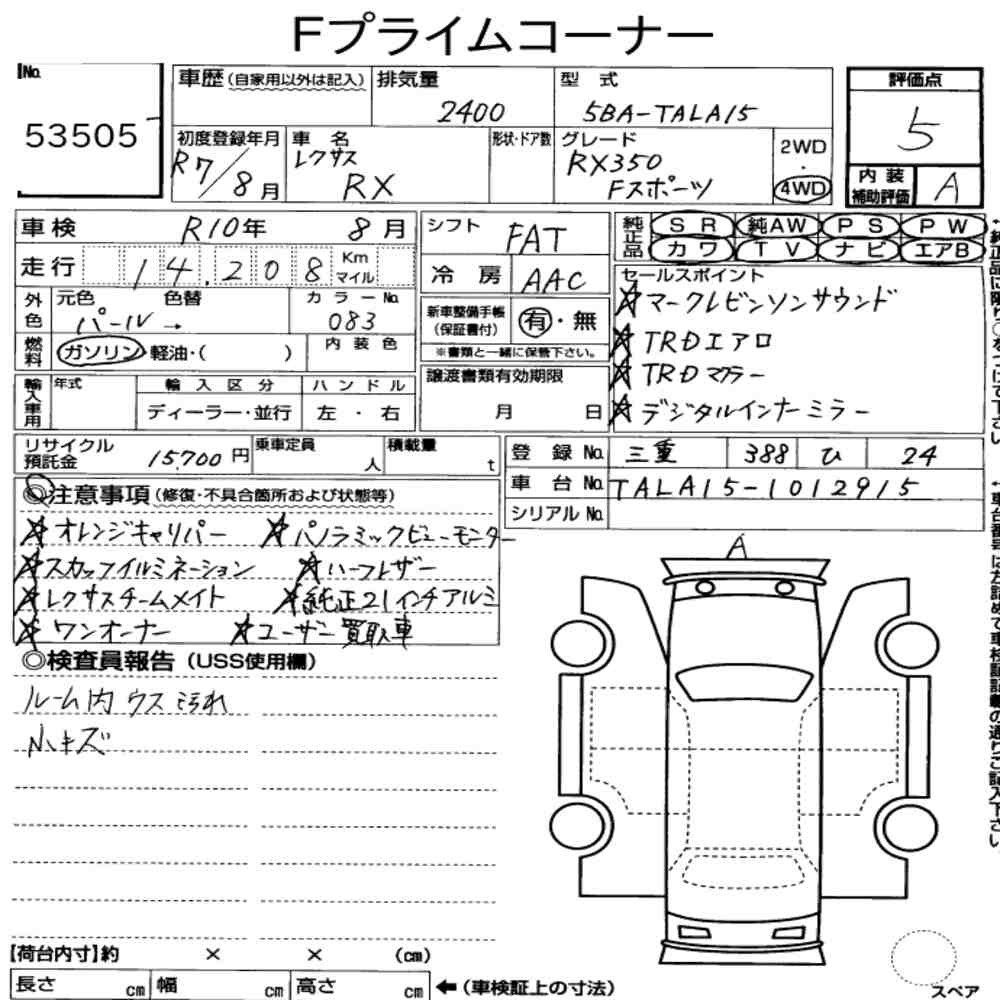 Fプライムコーナー
No.
53505
車歴(自家用以外は記入)
排気量
2400
型 式
5BA-TALA15
評価点
5
初度登録年月
R7/8月
車 名
レクサス
RX
形状・ドア数
グレード
RX350
Fスポーツ
2WD
・
4WD
内 装
補助評価
A
車検
R10年 8月
シフト
FAT
純正品
SR 純AW PS PW
カワ TV ナビ エアB
走行
14.208
Km
マイル
冷 房
AAC
セールスポイント
☆マークレビンソンサウンド
☆TRDエアロ
☆TRDマフラー
☆デジタルインナーミラー
外色
元色 色替
パール →
カラーNo.
083
新車整備手帳
(保証書付)
有・無
※書類と一緒に保管下さい。
燃料
ガソリン・軽油・( )
内装色
輸入車用
年式
輸入区分
ハンドル
ディーラー・並行
左 ・ 右
譲渡書類有効期限
月 日
リサイクル
預託金
15.700円
乗車定員
人
積載量
t
登 録 No.
三重 388 ひ 24
車 台 No.
TALA15-1012915
シリアル No.
◎注意事項(修復・不具合箇所および状態等)
☆オレンジキャリパー ☆パノラミックビューモニター
☆スカッフイルミネーション ☆ハーフレザー
☆レクサスチームメイト ☆純正21インチアルミ
☆ワンオーナー ☆ユーザー買取車
◎検査員報告(USS使用欄)
ルーム内 ウス汚れ
小キズ
A
【荷台内寸】約 × × (cm)
長さ cm 幅 cm 高さ cm ←(車検証上の寸法)
スペア